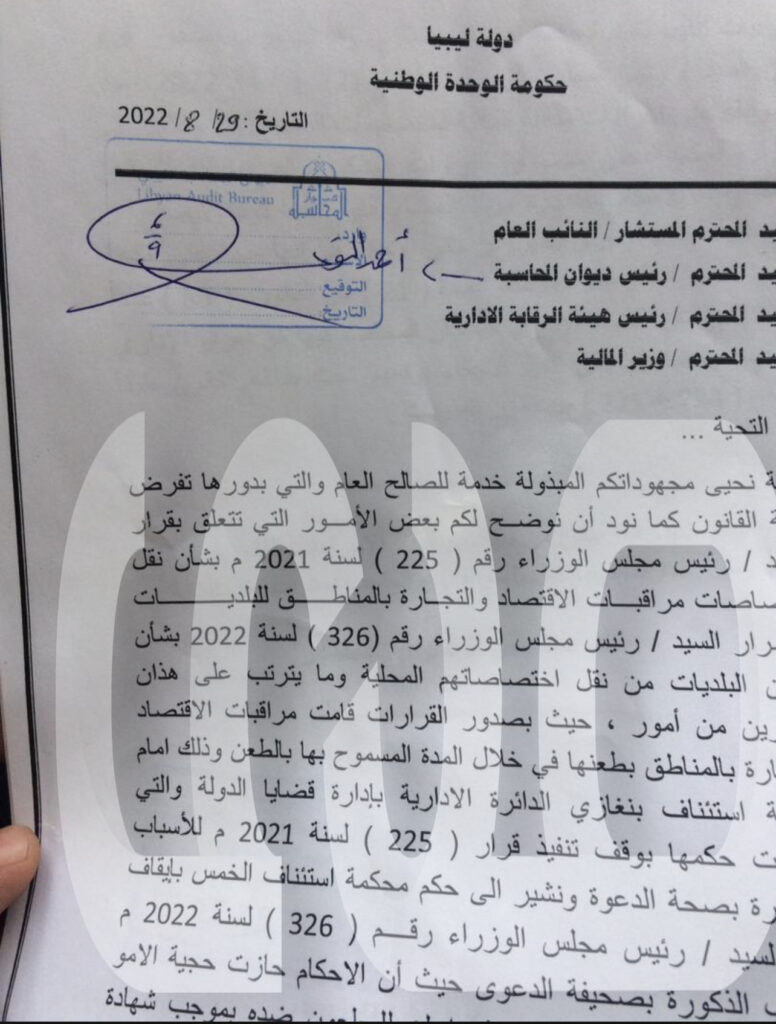 دولة ليبيا
حكومة الوحدة الوطنية
التاريخ : 29 / 8 / 2022
Libyan Audit Bureau
6
9
المحترم المستشار / النائب العام
المحترم / رئيس ديوان المحاسبة
المحترم / رئيس هيئة الرقابة الادارية
المحترم / وزير المالية
التوقيع
التاريخ:
التحية ...
نحيى مجهوداتكم المبذولة خدمة للصالح العام والتي بدورها تفرض
القانون كما نود أن نوضح لكم بعض الأمور التي تتعلق بقرار
/ رئيس مجلس الوزراء رقم ( 225 ) لسنة 2021 م بشأن نقل
مراقبات الاقتصاد والتجارة بالمناطق للبلديات
السيد / رئيس مجلس الوزراء رقم (326 ) لسنة 2022 بشأن
البلديات من نقل اختصاصاتهم المحلية وما يترتب على هذان
من أمور ، حيث بصدور القرارات قامت مراقبات الاقتصاد
بالمناطق بطعنها في خلال المدة المسموح بها بالطعن وذلك امام
استئناف بنغازي الدائرة الادارية بإدارة قضايا الدولة والتي
حكمها بوقف تنفيذ قرار ( 225 ) لسنة 2021 م للأسباب
بصحة الدعوة ونشير الى حكم محكمة استئناف الخمس بإيقاف
السيد / رئيس مجلس الوزراء رقم ( 326 ) لسنة 2022 م
الذكورة بصحيفة الدعوى حيث أن الاحكام حازت حجية الامو
ضده بموجب شهادة